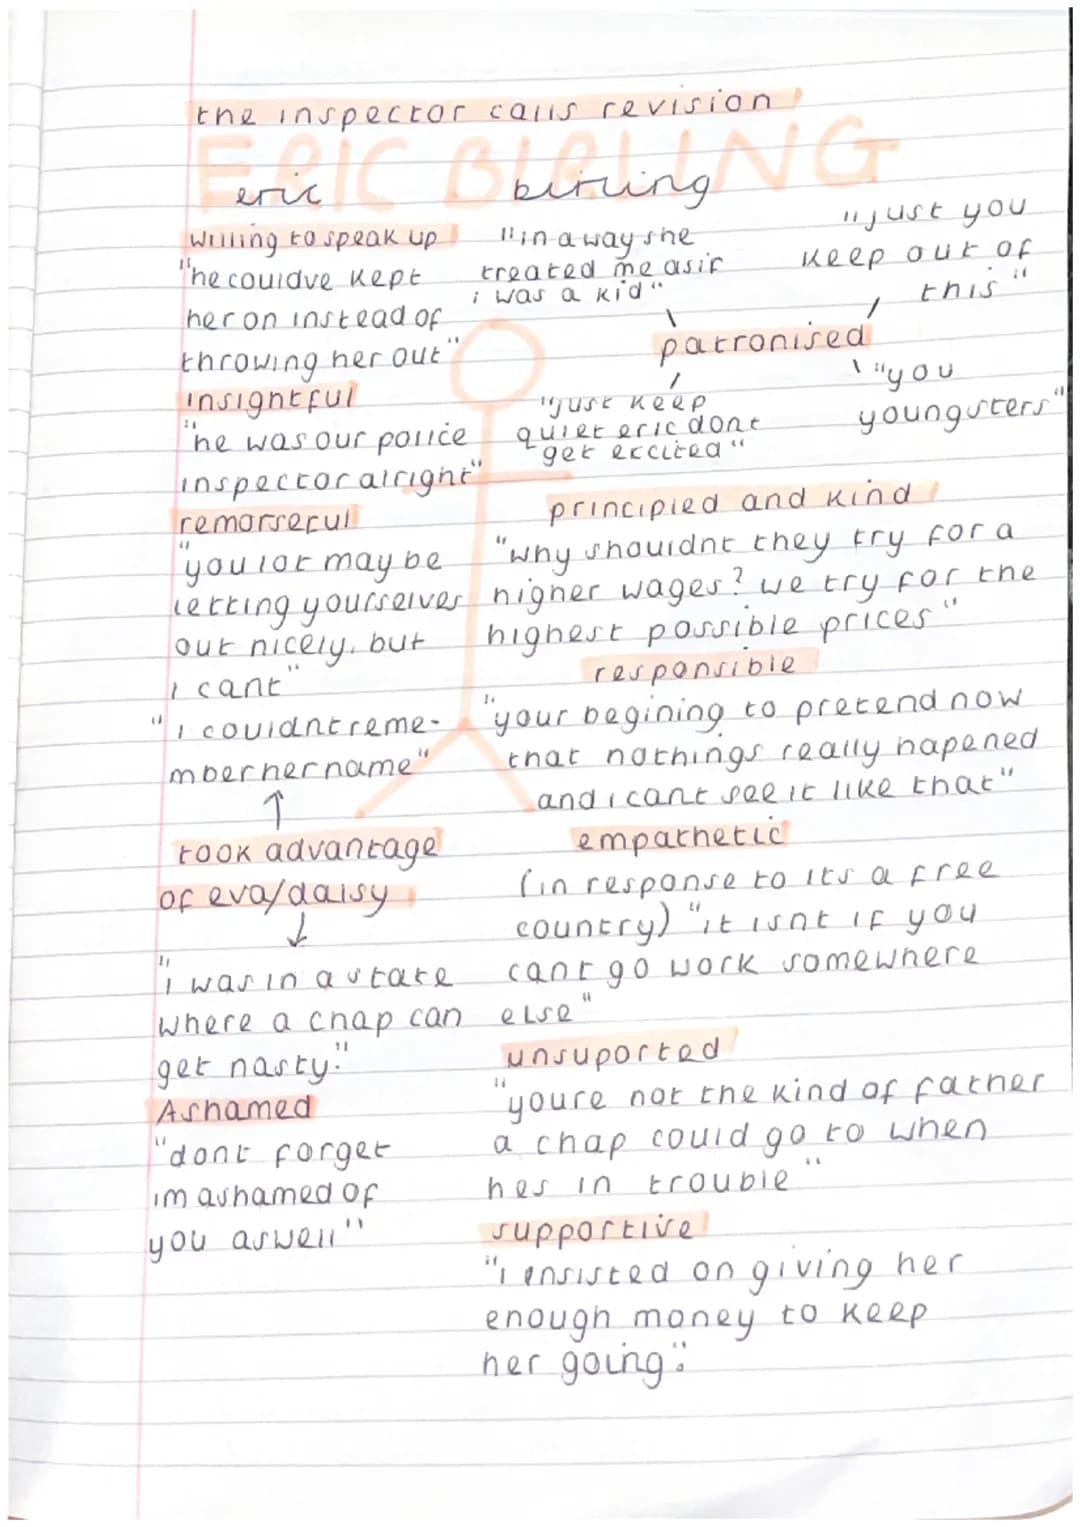 the inspector calls revision
ERIC BIRLING
eric birling
willing to speak up
"he couldve kept
her on instead of
throwing her out"
insightful
"he was our police
inspector alright"
remorseful
"you lot may be
letting yourselves
out nicely, but
i cant"
"i couldnt reme-
mber her name"
↑
took advantage
of eva/daisy
↓
"i was in a state
where a chap can
get nasty."
Ashamed
"dont forget
im ashamed of
you aswell"
"in a way she
treated me asif
i was a kid"
"just you
keep out of
this"
patronised
"just keep
quiet eric dont
get excited"
"you
youngsters"
principled and kind
"why shouldnt they try for a
higher wages? we try for the
highest possible prices"
responsible
"your begining to pretend now
that nothings really hapened
and i cant see it like that"
empathetic
(in response to its a free
country) "it isnt if you
cant go work somewhere
else"
unsuported
"youre not the kind of father
a chap could go to when
hes in trouble"
supportive
"i insisted on giving her
enough money to keep
her going".